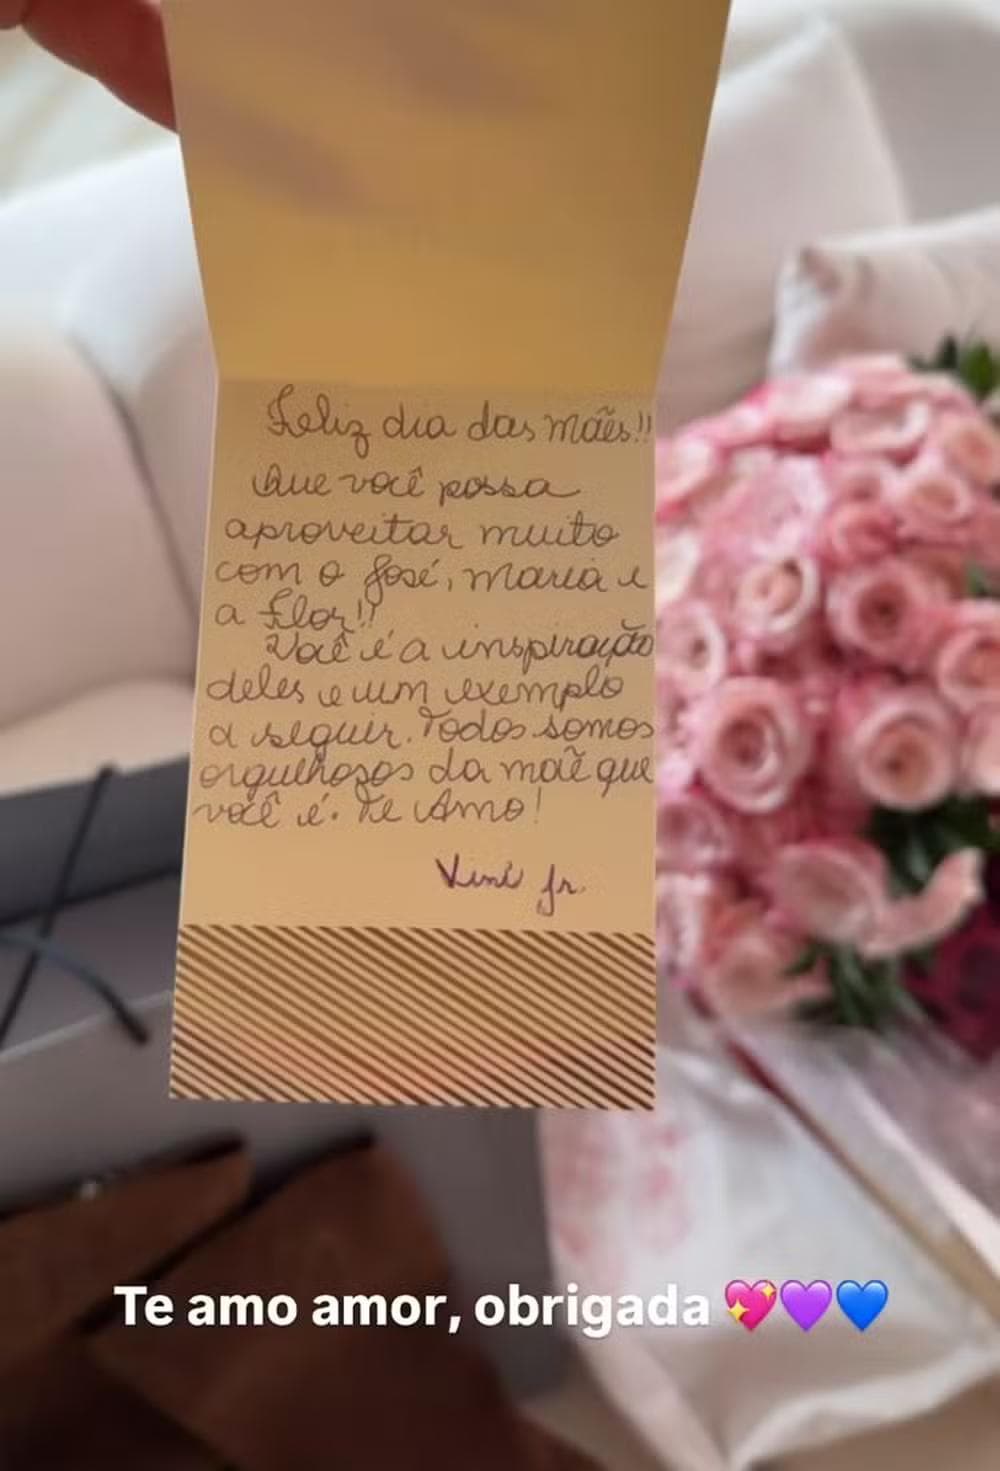 Feliz dia das mães!!
Que você possa
aproveitar muito
com o José, Maria e
a Flor!!
Você é a inspiração
deles e um exemplo
a seguir. Todos somos
orgulhosos da maẽ que
você é. Te Amo!
Vini Jr.
Te amo amor, obrigada 💖💜💙